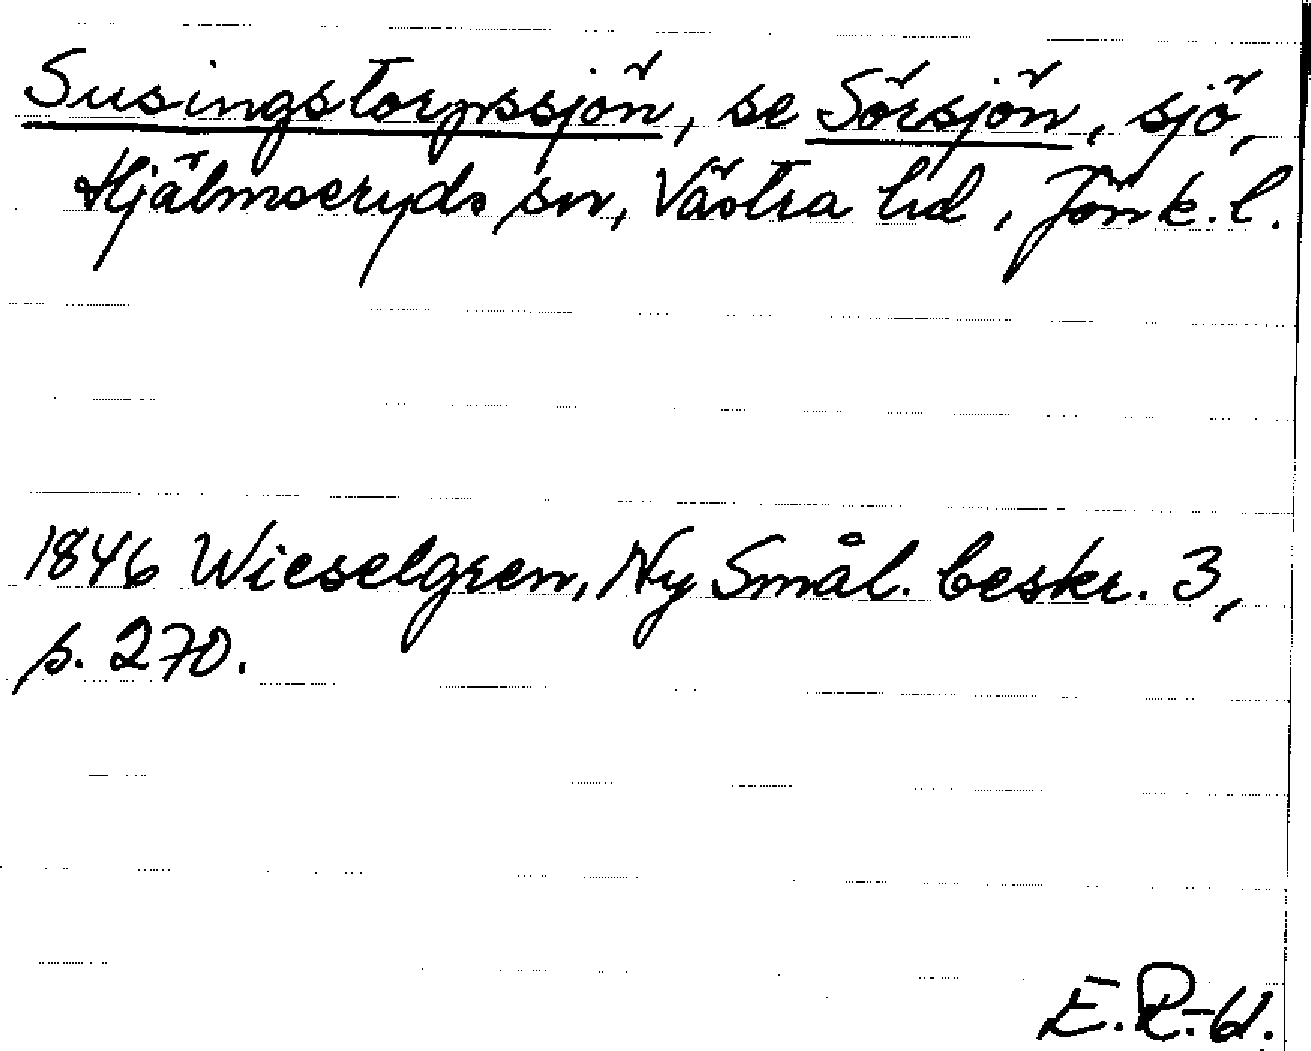 Susingstorpssjön, se Sörsjön, sjö,
Hjälmseryds sn, Västra hd, Jönk. l.
1846 Wieselgren, Ny Smål. beskr. 3,
s. 270.
E.R.-61.